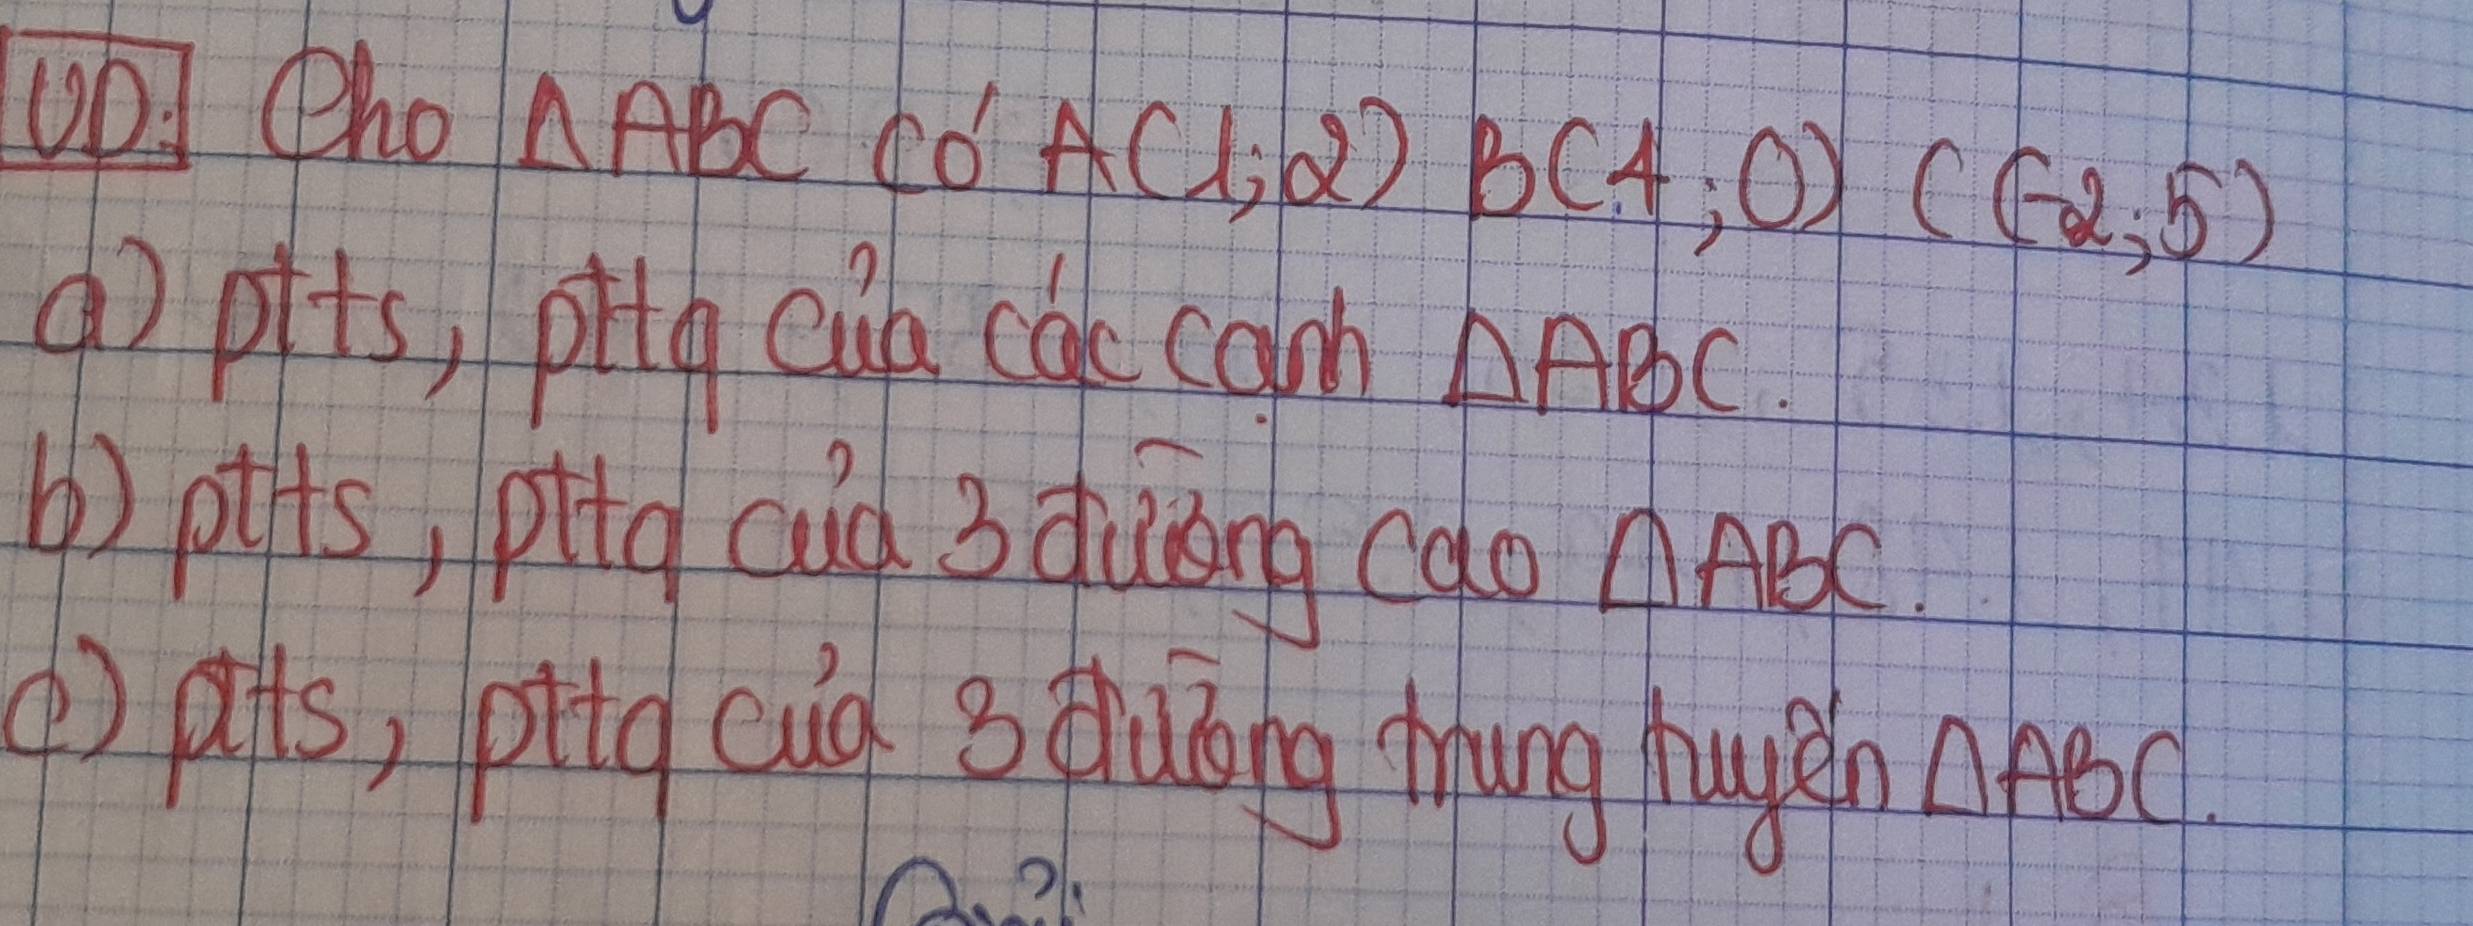 VD: Cho ΔABC có A(1;2) B(4;0) C(-2;5)
a) ptts, pttq của các cạnh ΔABC.
b) ptts, pttq của 3 đường cao ΔABC.
c) ptts, pttq của 3 đường trung tuyến ΔABC.